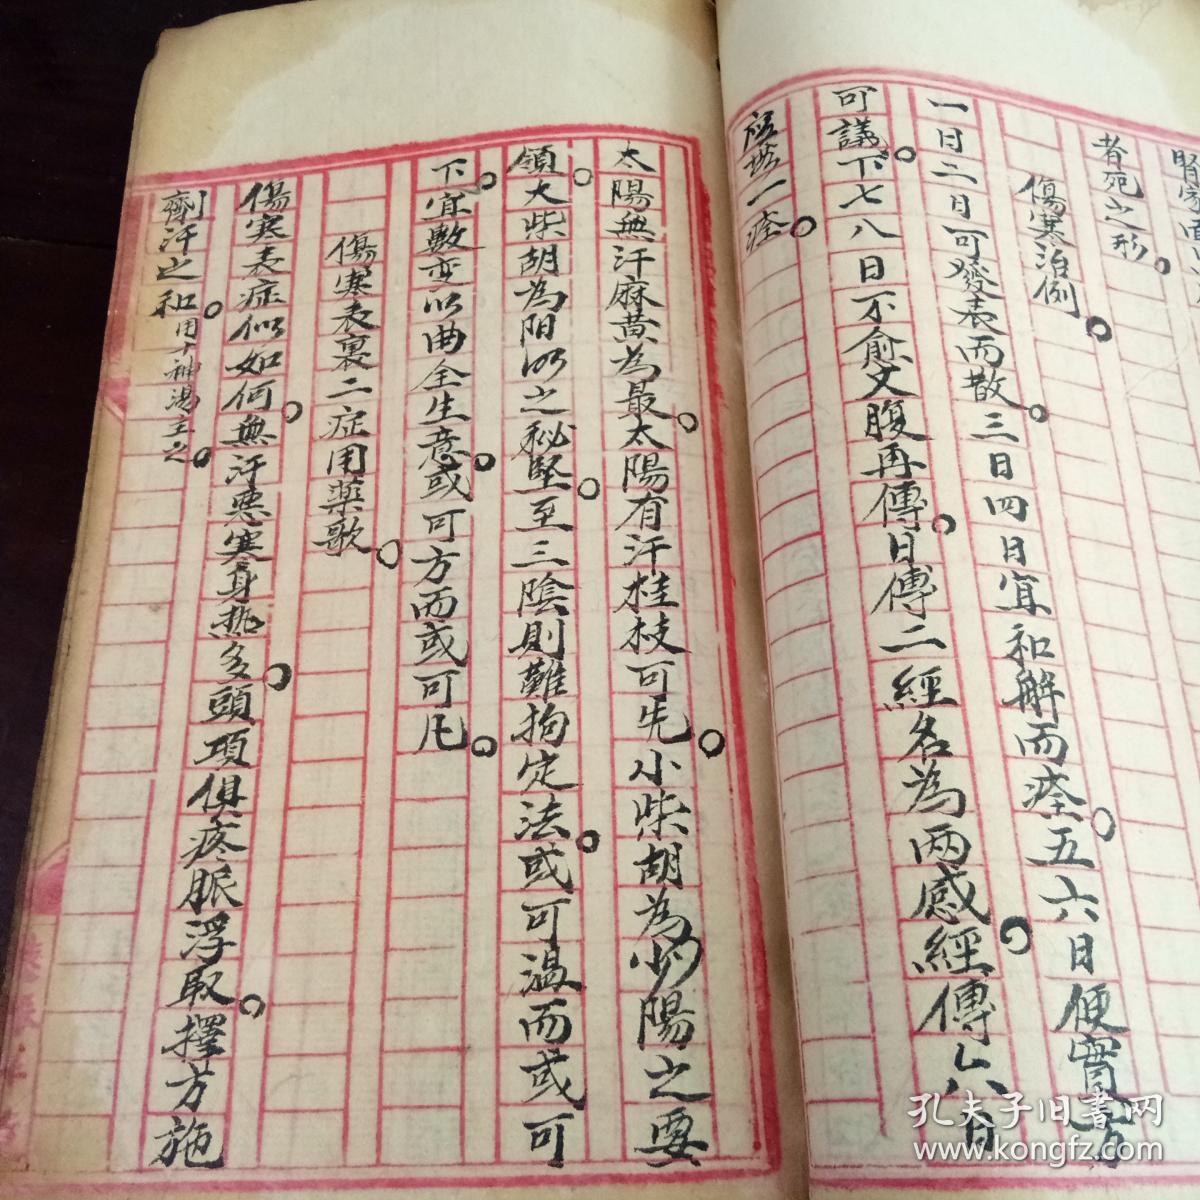 腎家面
者死之形
傷寒治例
一日二日可發表而散三日四日宜和解而痊五六日便實方
可議下七八日不愈又腹再傳日傳二經名為兩感經傳六日
應當一痊
太陽無汗麻黃為最太陽有汗桂枝可先小柴胡為少陽之要
領大柴胡為阳明之秘堅至三陰則難拘定法或可温而或可
下宜數变以曲全生意或可方而或可凡
傷寒表裏二症用藥歌
傷寒表症似如何無汗惡寒身热多頭項俱疼脈浮取擇方施
劑汗之和用神湯主之
孔夫子旧书网
www.kongfz.com